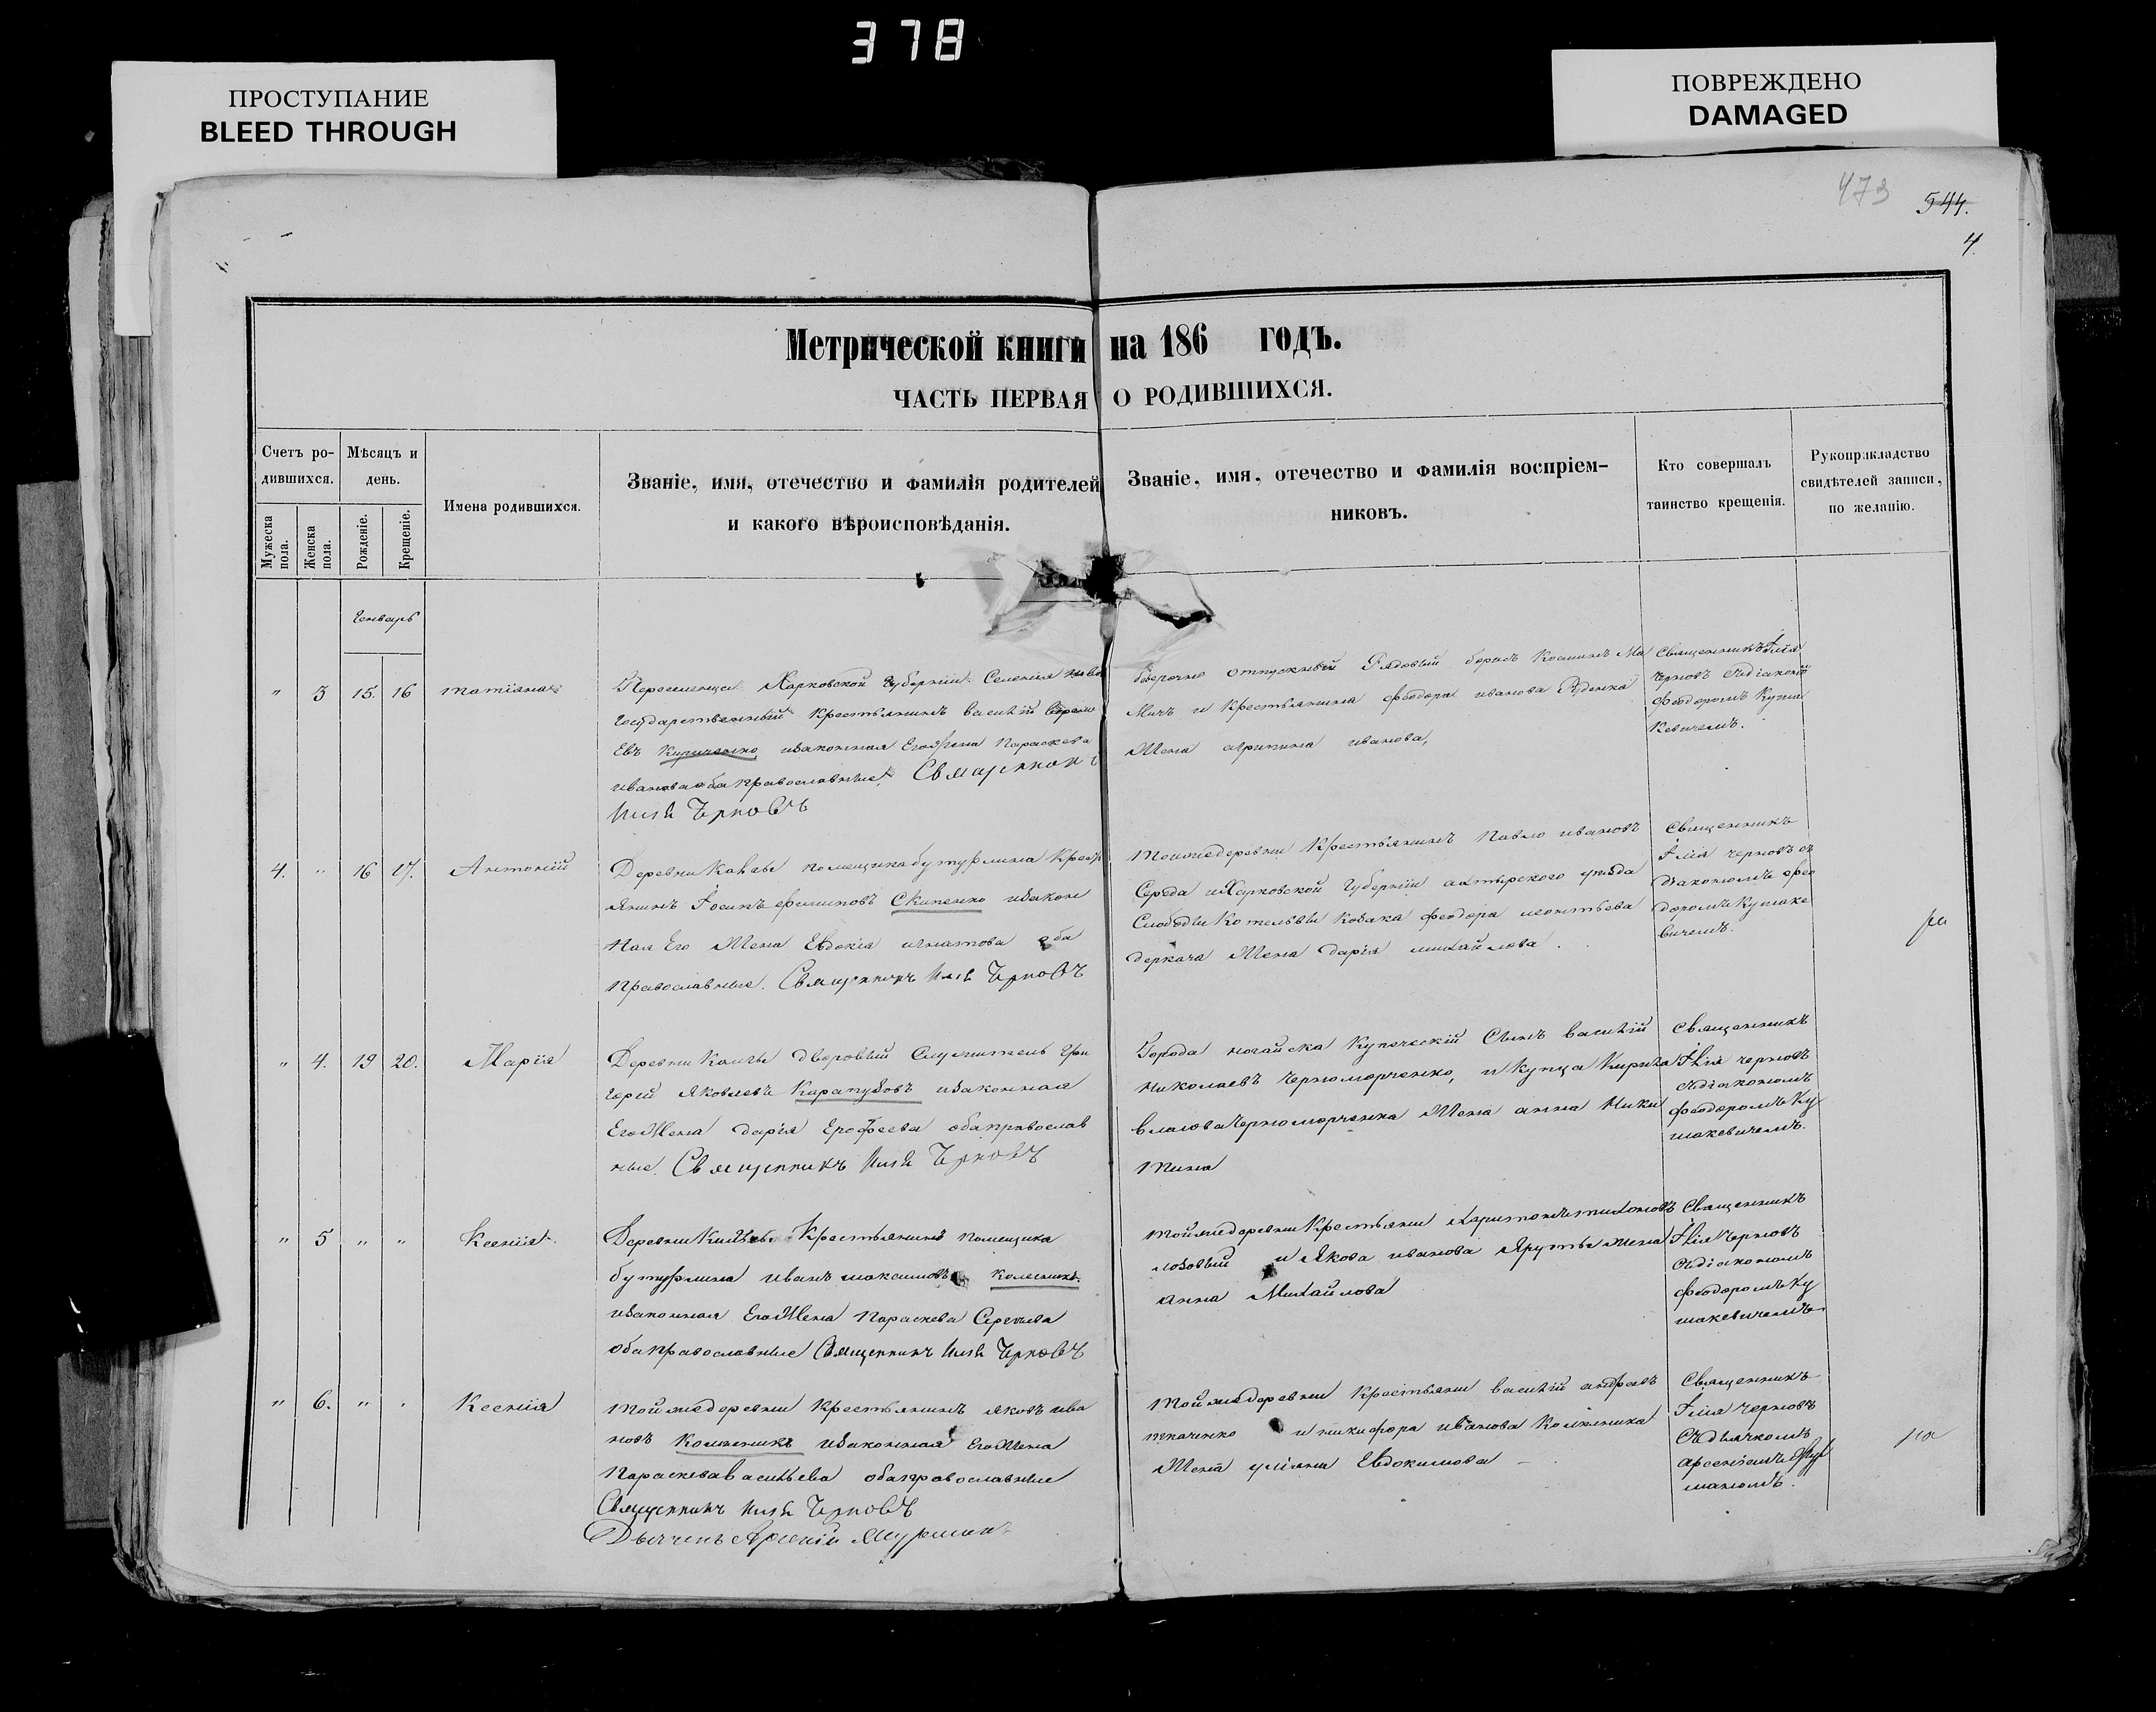 378
ПРОСТУПАНИЕ
BLEED THROUGH
ПОВРЕЖДЕНО
DAMAGED
473
544.
4
Метрической книги на 186 годъ.
ЧАСТЬ ПЕРВАЯ О РОДИВШИХСЯ.
Счетъ ро-
дившихся.
Мужеска
пола.
Женска
пола.
Мѣсяцъ и
день.
Рожденіе.
Крещеніе.
Имена родившихся.
Званіе, имя, отечество и фамилія родителей
и какого вѣроисповѣданія.
Званіе, имя, отечество и фамилія воспріем-
никовъ.
Кто совершалъ
таинство крещенія.
Рукоприкладство
свидѣтелей записи,
по желанію.
Генварь
" 3 15. 16
Харковской Губерніи Селенія
Государственный Крестьянинъ василій
Евъ изаконная Его Жена Параскева
иванова оба православные. Священник
Илія Чрновъ
отпускный Рядовый
Мичъ и Крестьянина феодора иванова
Жена иванова,
Священникъ Илія
Чрновъ
феодоромъ Куша
кевичемъ.
4. " 16 17. Антоній
Деревни помещика бутурлина Крест
янинъ Іосипъ филиповъ Скипенко изакон
ная Его Жена Евдокія игнатова оба
православные. Священникъ Илія Чрновъ
Тоижедеревни Крестьянинъ Павло ивановъ
Середа иХарковской Губерніи ахтырского уѣзда
Слободы Котельвы Козака феодора леонтьева
деркача Жена дарія михайлова.
Священникъ
Ілія черновъ съ
діакономъ фео
доромъ Кушаке
вичемъ.
" 4. 19 20. Марія
Деревни дворовый Служитель Гри
горій Яковлевъ Карапузовъ изаконная
ЕгоЖена дарія Ерофеева обаправослав
ные. Священникъ Илія Чрновъ
Города ногайска Купеческій Сынъ василій
николаевъ Черноморченко, и Купца
Черноморченка Жена анна Ники
тина
Священникъ
Ілія черновъ
сдіакономъ
феодоромъ Ку
шакевичемъ.
" 5 " " Ксенія
Деревни Крестьянинъ помещика
бутурлина иванъ максимовъ колесникъ.
изаконная ЕгоЖена Параскева Сергіева
оба православные Священникъ Илія Чрновъ
Тойжедеревни Крестьяни
лозовый и Якова иванова Жена
анна Михайлова
Священникъ
Ілія Черновъ
сдіакономъ
феодоромъ Ку
шакевичемъ
" 6. " " Ксенія
Тойжедеревни Крестьянинъ яковъ ива
новъ изаконная ЕгоЖена
Параскева васильева обаправославные
Священникъ Илія Чрновъ
Дьячекъ Арсеній
Тойжедеревни Крестьяни василій
ткаченко и никифора иванова
Жена уліяна Евдокимова
Священникъ
Ілія Черновъ
Съдьячкомъ
арсеніемъ